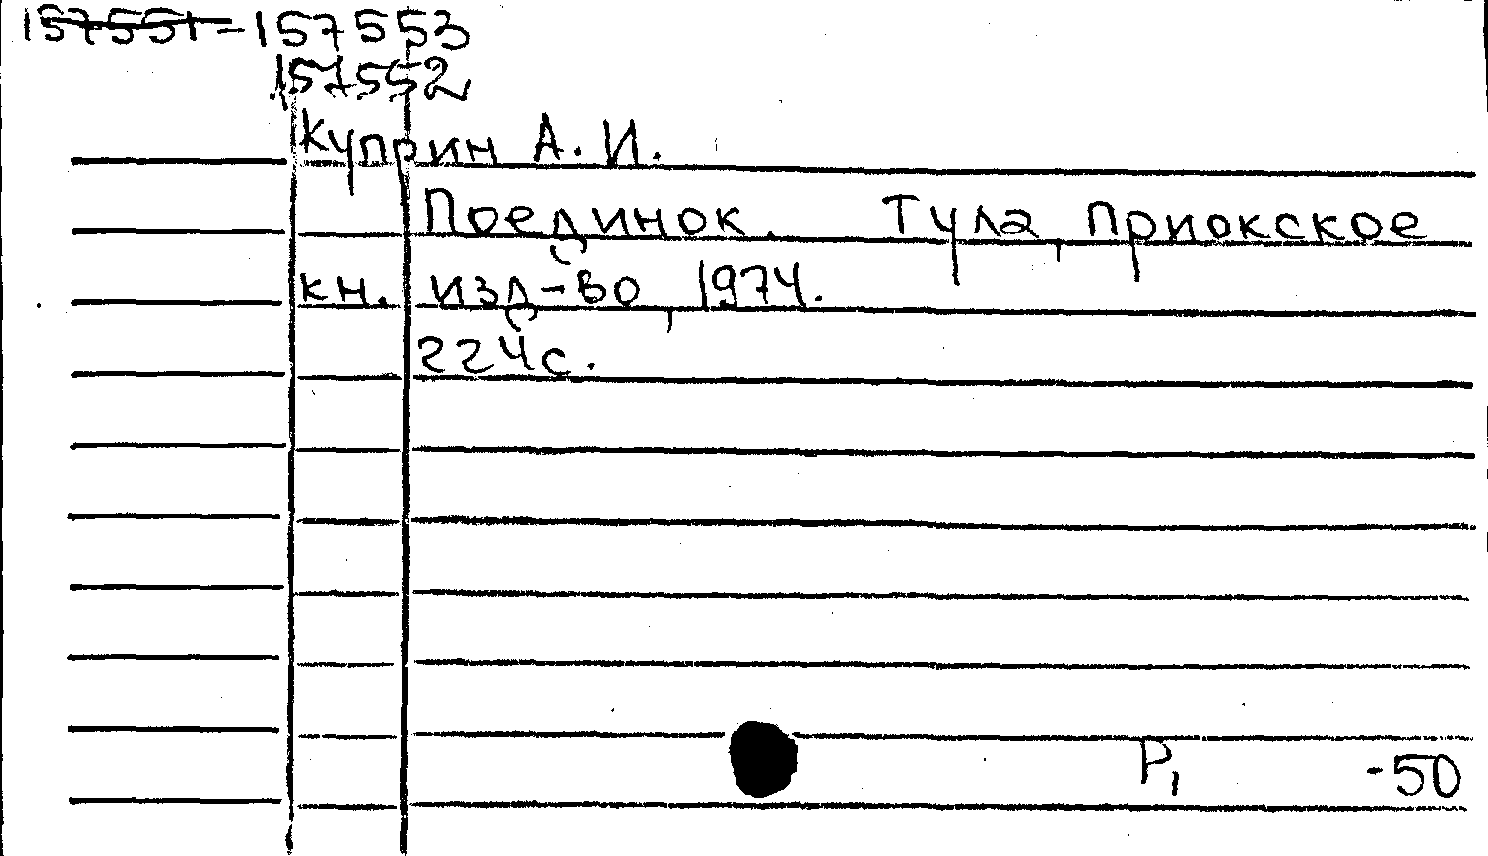 157551-157553
157552
Куприн А. И.
Поединок. Тула, Приокское
кн. изд-во, 1974.
224с.
Р1 -50